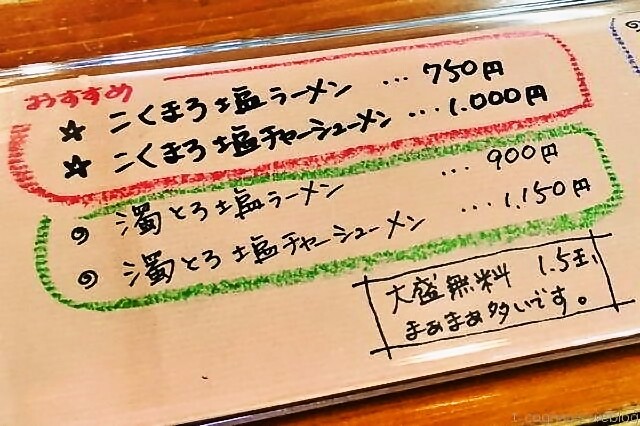 おすすめ
☆ こくまろ塩ラーメン … 750円
☆ こくまろ塩チャーシューメン … 1.000円
◎ 濁とろ塩ラーメン … 900円
◎ 濁とろ塩チャーシューメン … 1.150円
大盛無料 1.5玉
まぁまぁ多いです。